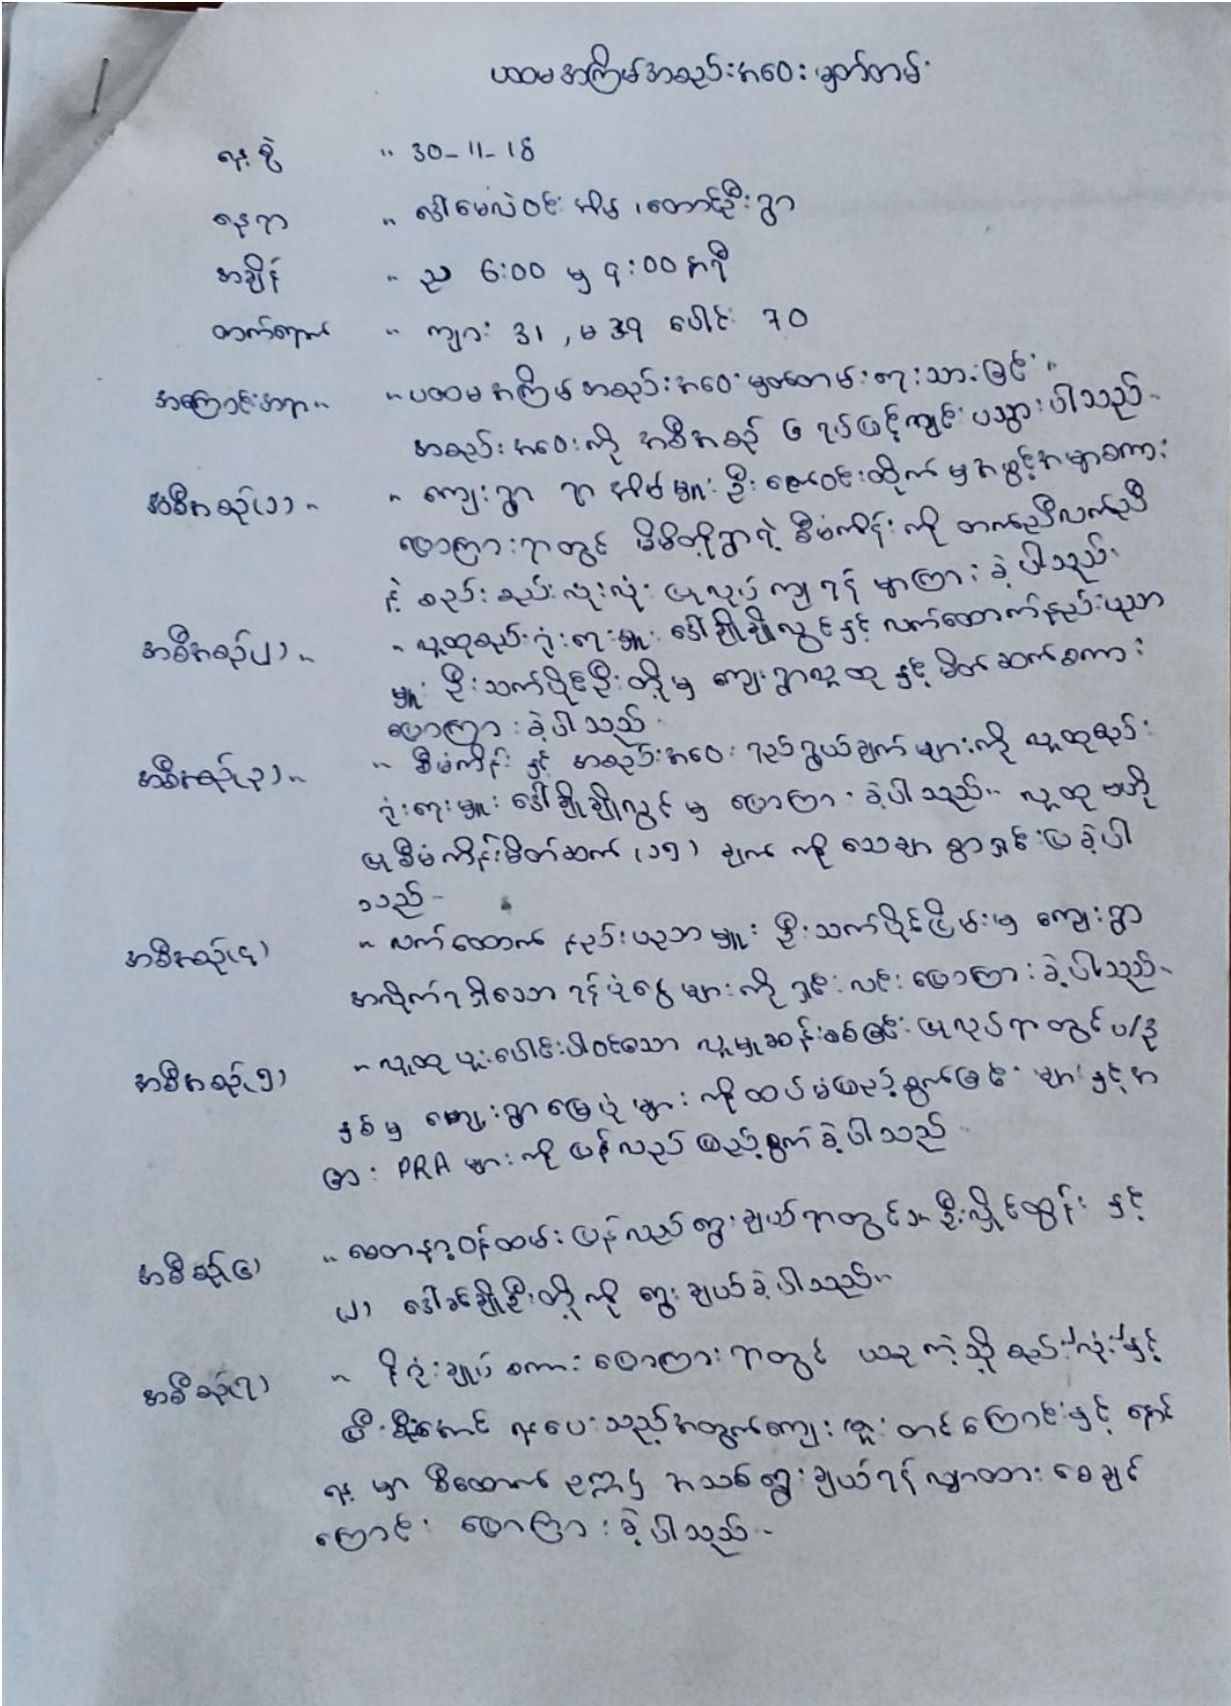 ပထမအကြိမ်အစည်းအဝေးမှတ်တမ်း
နေ့စွဲ " 30-11-18
နေရာ " ဒေါ်မေလဲ့ဝင်းအိမ်၊ တောင်ဦးရွာ
အချိန် " ည 6:00 မှ 9:00 အထိ
တက်ရောက် " ကျား 31 , မ 39 ပေါင်း 70
အကြောင်းအရာ " "ပထမအကြိမ်အစည်းအဝေးမှတ်တမ်းရေးသားခြင်း"
အစည်းအဝေးကို အစီအစဉ် ၆ ရပ်ဖြင့်ကျင်းပသွားပါသည်။
အစီအစဉ်(၁) " ကျေးရွာ ရာအိမ်မှူး ဦးဇော်ဝင်းထိုက်မှ အဖွင့်အမှာစကား
ပြောကြားရာတွင် မိမိတို့ရွာရဲ့ စီမံကိန်းကို တက်ညီလက်ညီ
နဲ့ စည်းစည်းလုံးလုံး ပြုလုပ်ကြရန် မှာကြားခဲ့ပါသည်။
အစီအစဉ်(၂) " လူထုစည်းရုံးရေးမှူး ဒေါ်ချိုချိုလွင်နှင့် လက်ထောက်နည်းပညာ
မှူး ဦးသက်ပိုင်ဦးတို့မှ ကျေးရွာလူထုနှင့် မိတ်ဆက်စကား
ပြောကြားခဲ့ပါသည်။
အစီအစဉ်(၃) " စီမံကိန်းနှင့် အစည်းအဝေး ရည်ရွယ်ချက်များကို လူထုစည်း
ရုံးရေးမှူး ဒေါ်ချိုချိုလွင်မှ ပြောကြားခဲ့ပါသည်။ လူထုဗဟို
ပြုစီမံကိန်းမိတ်ဆက် (၁၅) ချက် ကို သေချာစွာရှင်းပြခဲ့ပါ
သည်။
အစီအစဉ်(၄) " လက်ထောက် နည်းပညာမှူး ဦးသက်ပိုင်ဦးမှ ကျေးရွာ
အလိုက်ရရှိသော ရန်ပုံငွေများကို ရှင်းလင်းပြောကြားခဲ့ပါသည်။
အစီအစဉ်(၅) " လူထုပူးပေါင်းပါဝင်သော လူမှုဆန်းစစ်ခြင်းပြုလုပ်ရာတွင် ပ/ဒု
နှစ်မှ ကျေးရွာမြေပုံများကို ထပ်မံဖြည့်စွက်ခြင်းများနှင့်အ
ခြား PRA များကို ပြန်လည်ဖြည့်စွက်ခဲ့ပါသည်
အစီစဉ်(၆) " စေတနာ့ဝန်ထမ်းပြန်လည်ရွေးချယ်ရာတွင် ၁၊ ဦးလှိုင်ထွန်း နှင့်
၂၊ ဒေါ်ခင်ချိုဦးတို့ကို ရွေးချယ်ခဲ့ပါသည်။
အစီစဉ်(၇) " နိဂုံးချုပ် စကားပြောကြားရာတွင် ယခုကဲ့သို့ စည်း"လုံး"နှင့်
ပြီးစီးအောင် နေပေးသည့်အတွက်ကျေးဇူးတင်ကြောင်းနှင့် နောင်
နေ့ မှာ စီထောက် ဥက္ကဌ အသစ်ရွေးချယ်ရန် လျာထားစေချင်
ကြောင်း ပြောကြားခဲ့ပါသည်။